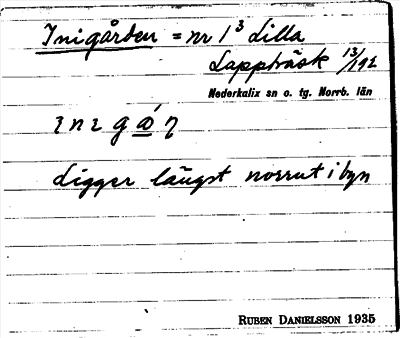 Inigården = nr 1³ Lilla
Lappträsk 13/192
Nederkalix sn o. tg. Norrb. län
Ligger längst norrut i byn
RUBEN DANIELSSON 1935